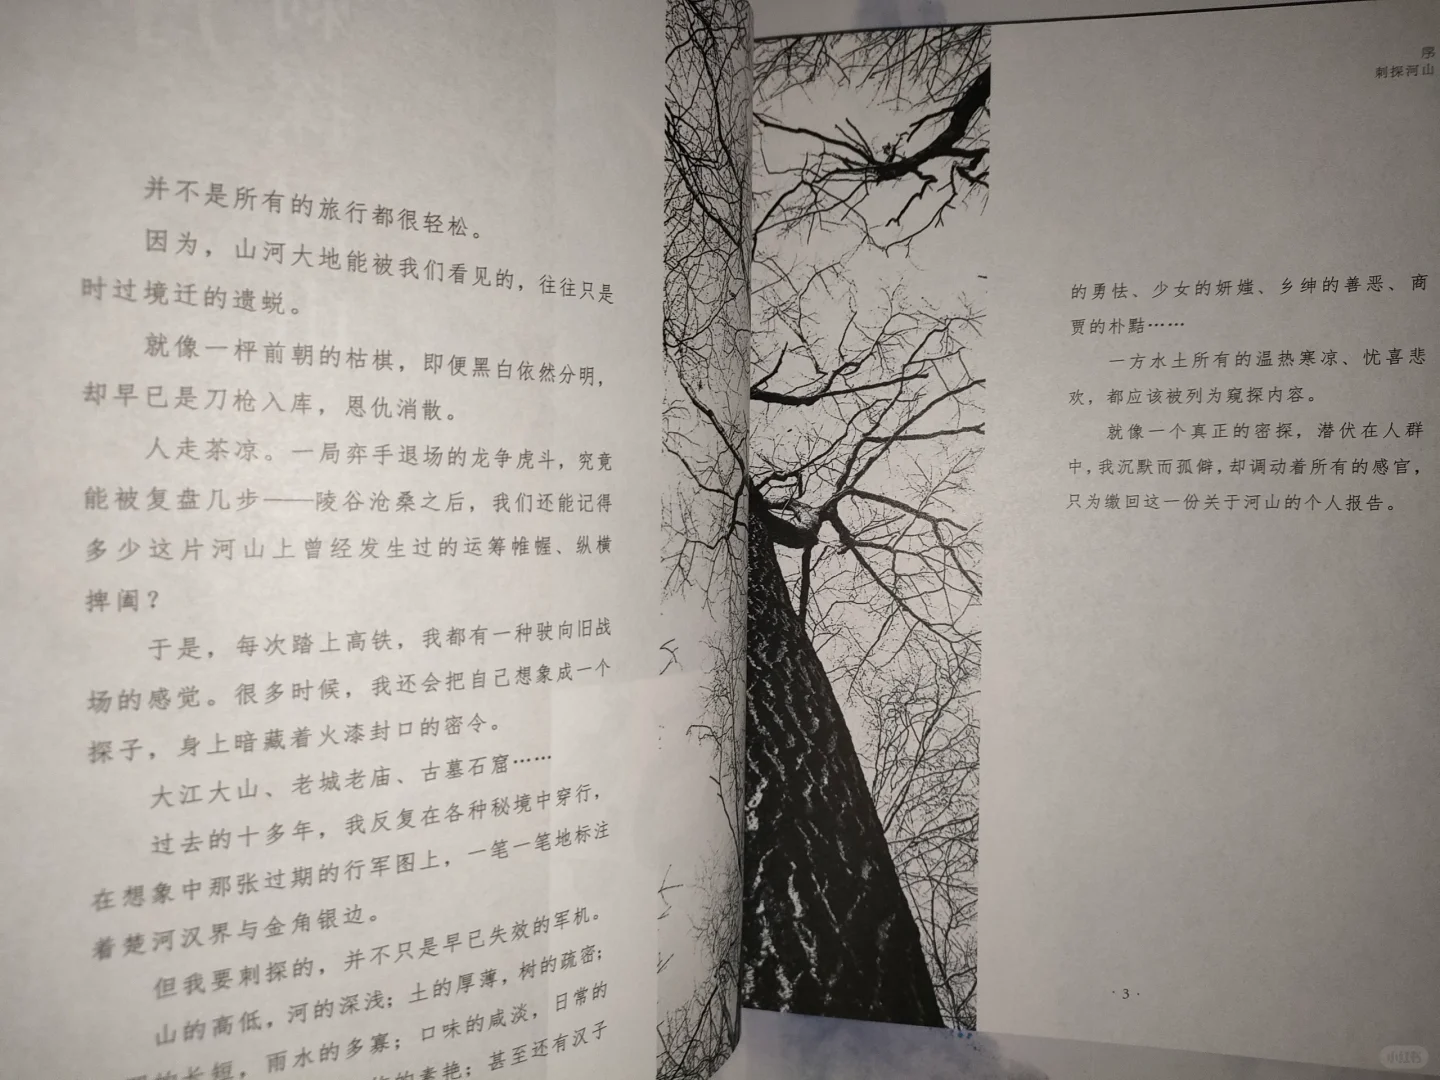 并不是所有的旅行都很轻松。
因为，山河大地能被我们看见的，往往只是
时过境迁的遗蜕。
就像一枰前朝的枯棋，即便黑白依然分明，
却早已是刀枪入库，恩仇消散。
人走茶凉。一局弈手退场的龙争虎斗，究竟
能被复盘几步——陵谷沧桑之后，我们还能记得
多少这片河山上曾经发生过的运筹帷幄、纵横
捭阖？
于是，每次踏上高铁，我都有一种驶向旧战
场的感觉。很多时候，我还会把自己想象成一个
探子，身上暗藏着火漆封口的密令。
大江大山、老城老庙、古墓石窟……
过去的十多年，我反复在各种秘境中穿行，
在想象中那张过期的行军图上，一笔一笔地标注
着楚河汉界与金角银边。
但我要刺探的，并不只是早已失效的军机。
山的高低，河的深浅；土的厚薄，树的疏密；
的长短，雨水的多寡；口味的咸淡，日常的
的素艳；甚至还有汉子
序
刺探河山
的勇怯、少女的妍媸、乡绅的善恶、商
贾的朴黠……
一方水土所有的温热寒凉、忧喜悲
欢，都应该被列为窥探内容。
就像一个真正的密探，潜伏在人群
中，我沉默而孤僻，却调动着所有的感官，
只为缴回这一份关于河山的个人报告。
·3·
小红书